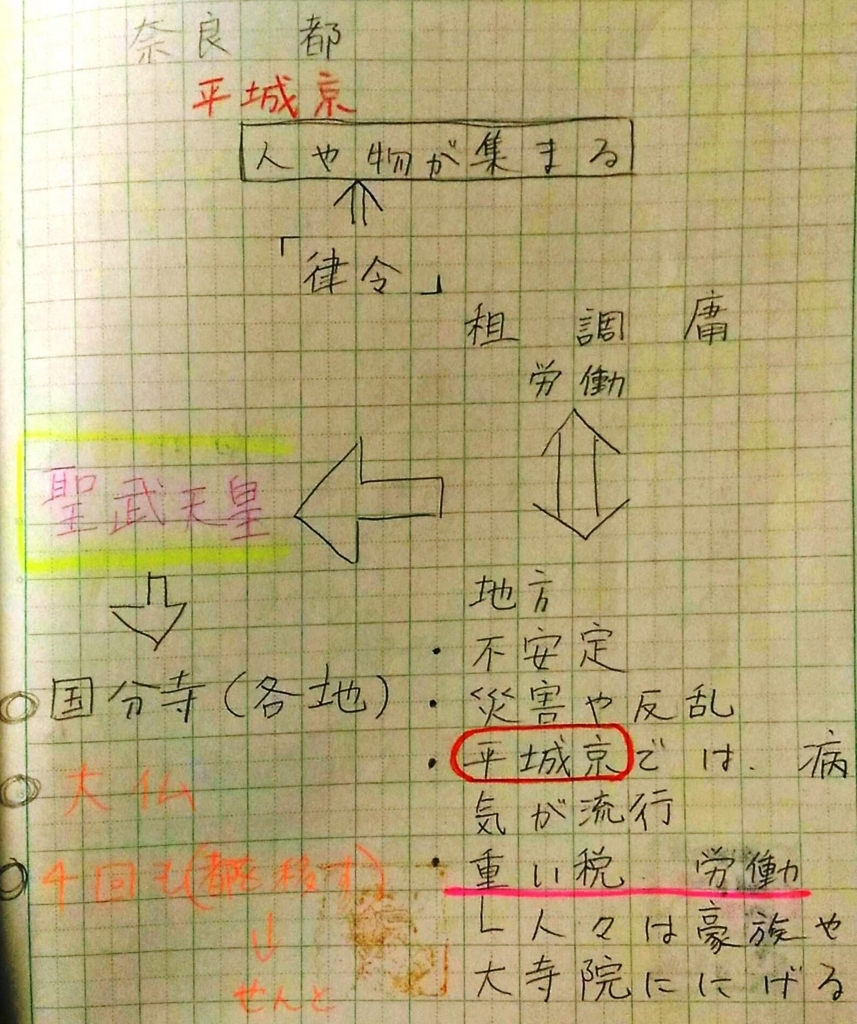 奈良 都
平城京
人や物が集まる
「律令」
租 調 庸
労働
聖武天皇
国分寺(各地)
大仏
4回も(都を移す)
せんと
地方
・不安定
・災害や反乱
・平城京では、病
気が流行
・重い税、労働
└人々は豪族や
大寺院ににげる